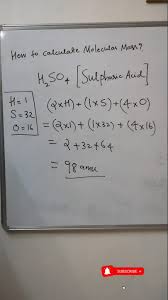 How to calculate Molecular Mass?
H₂SO₄ [Sulphuric Acid]
H = 1
S = 32
O = 16
(2×H) + (1×S) + (4×O)
= (2×1) + (1×32) + (4×16)
= 2 + 32 + 64
= 98 amu
SUBSCRIBE